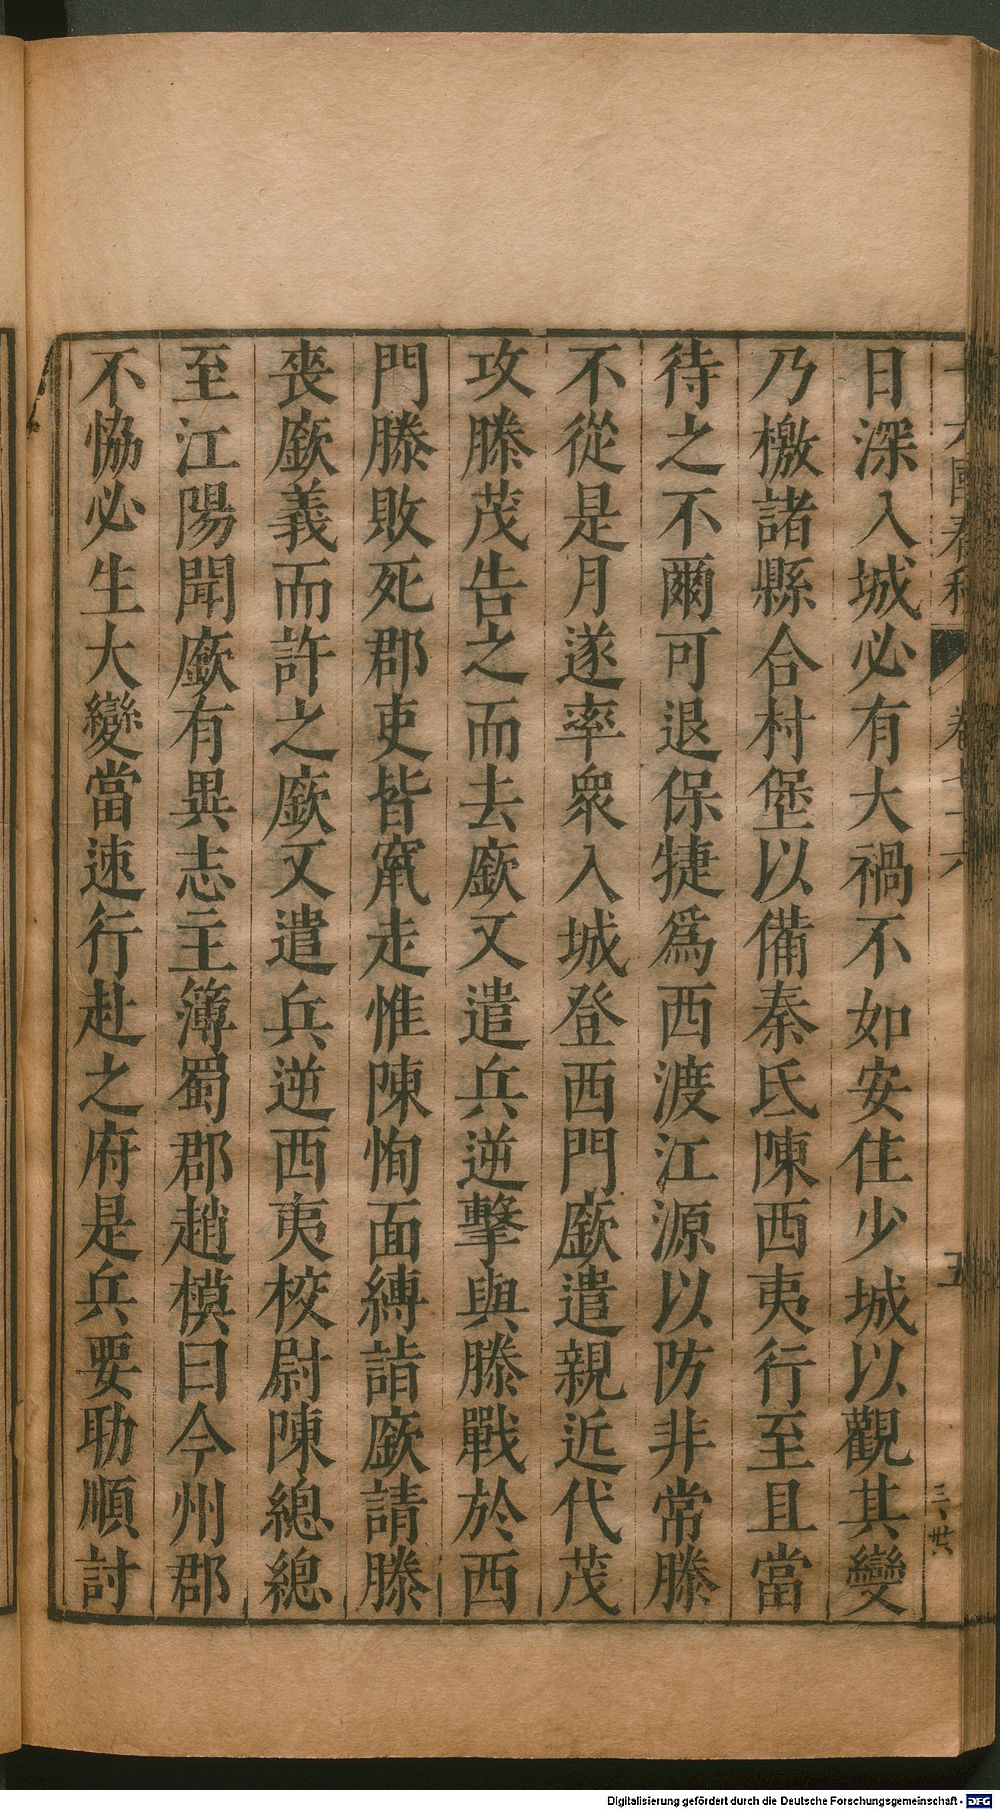 十六國春秋 卷七十六 五
日深入城必有大禍不如安住少城以觀其變
乃檄諸縣合村堡以備秦氐陳西夷行至且當
待之不爾可退保犍爲西渡江源以防非常滕
不從是月遂率衆入城登西門廞遣親近代茂
攻滕茂告之而去廞又遣兵逆擊與滕戰於西
門滕敗死郡吏皆竄走惟陳恂面縛詣廞請滕
喪廞義而許之廞又遣兵逆西夷校尉陳總總
至江陽聞廞有異志主簿蜀郡趙模曰今州郡
不恊必生大變當速行赴之府是兵要助順討
Digitalisierung gefördert durch die Deutsche Forschungsgemeinschaft - DFG